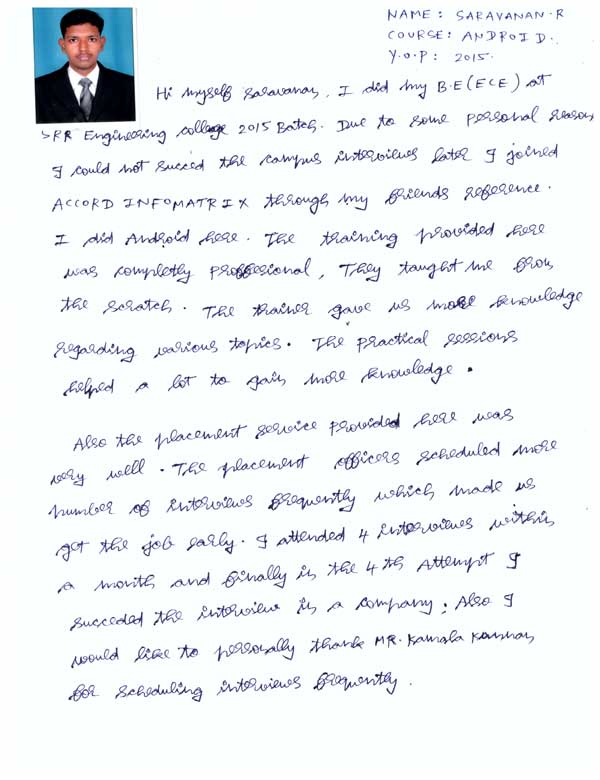 NAME : SARAVANAN.R
COURSE : ANDROID.
Y.O.P : 2015.
Hi myself saravanan, I did my B.E(ECE) at
SRR Engineering college 2015 Batch. Due to some personal reason
I could not succed the campus interviews later I joined
ACCORD INFOMATRIX through my friends reference.
I did Android here. The training provided here
was completly proffesional, They taught me from
the scratch. The trainer gave us more knowledge
regarding various topics. The practical sessions
helped a lot to gain more knowledge.
Also the placement service provided here was
very well. The placement officers scheduled more
number of interviews frequently which made us
get the job early. I attended 4 interviews within
a month and finally in the 4th Attempt I
succeded the interview in a company. Also I
would like to personally thank MR. Kamala Kannan
for scheduling interviews frequently.